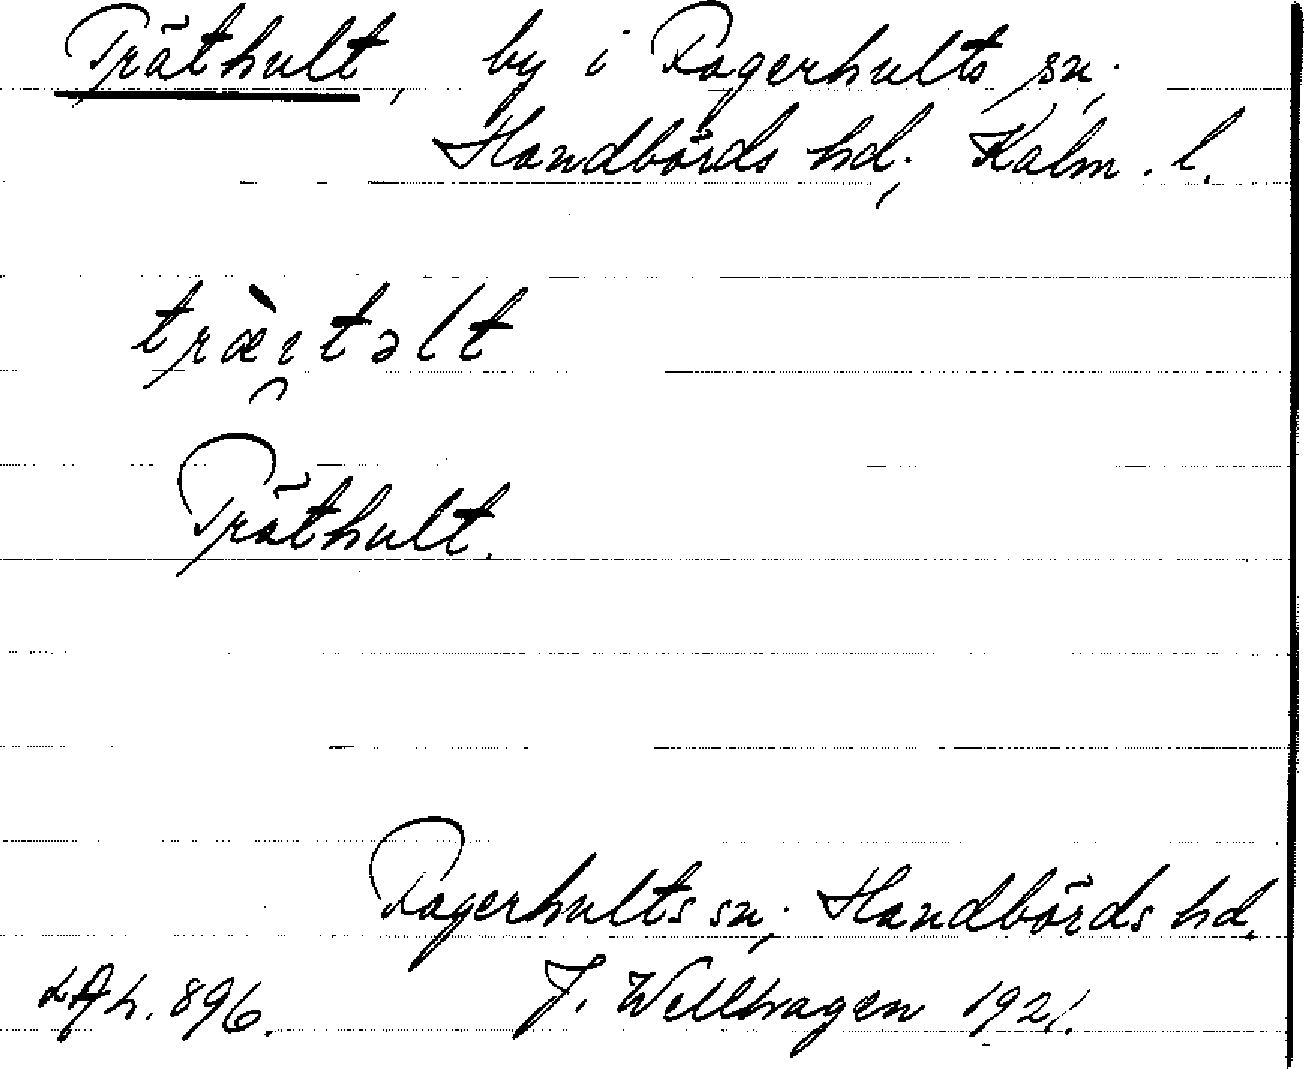 Träthult, by i Fagerhults sn;
Handbörds hd; Kalm. l.
træ̀ıtəlt
Träthult.
Fagerhults sn; Handbörds hd.
896. J. Wellhagen 1921.